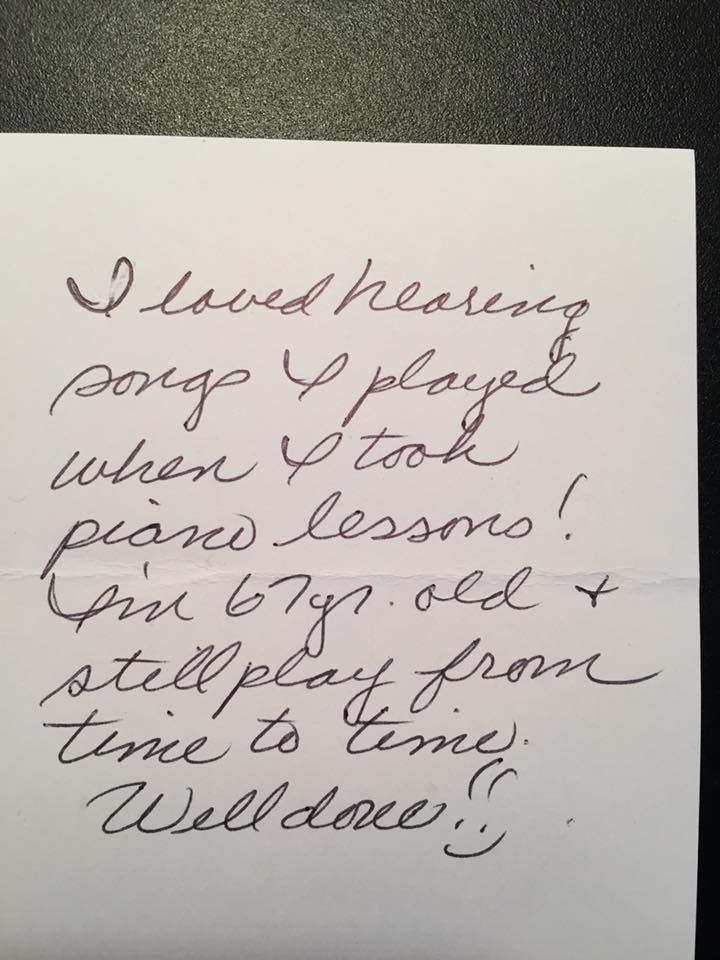 I loved hearing
songs I played
when I took
piano lessons!
I'm 67 yr. old +
still play from
time to time.
Well done!!